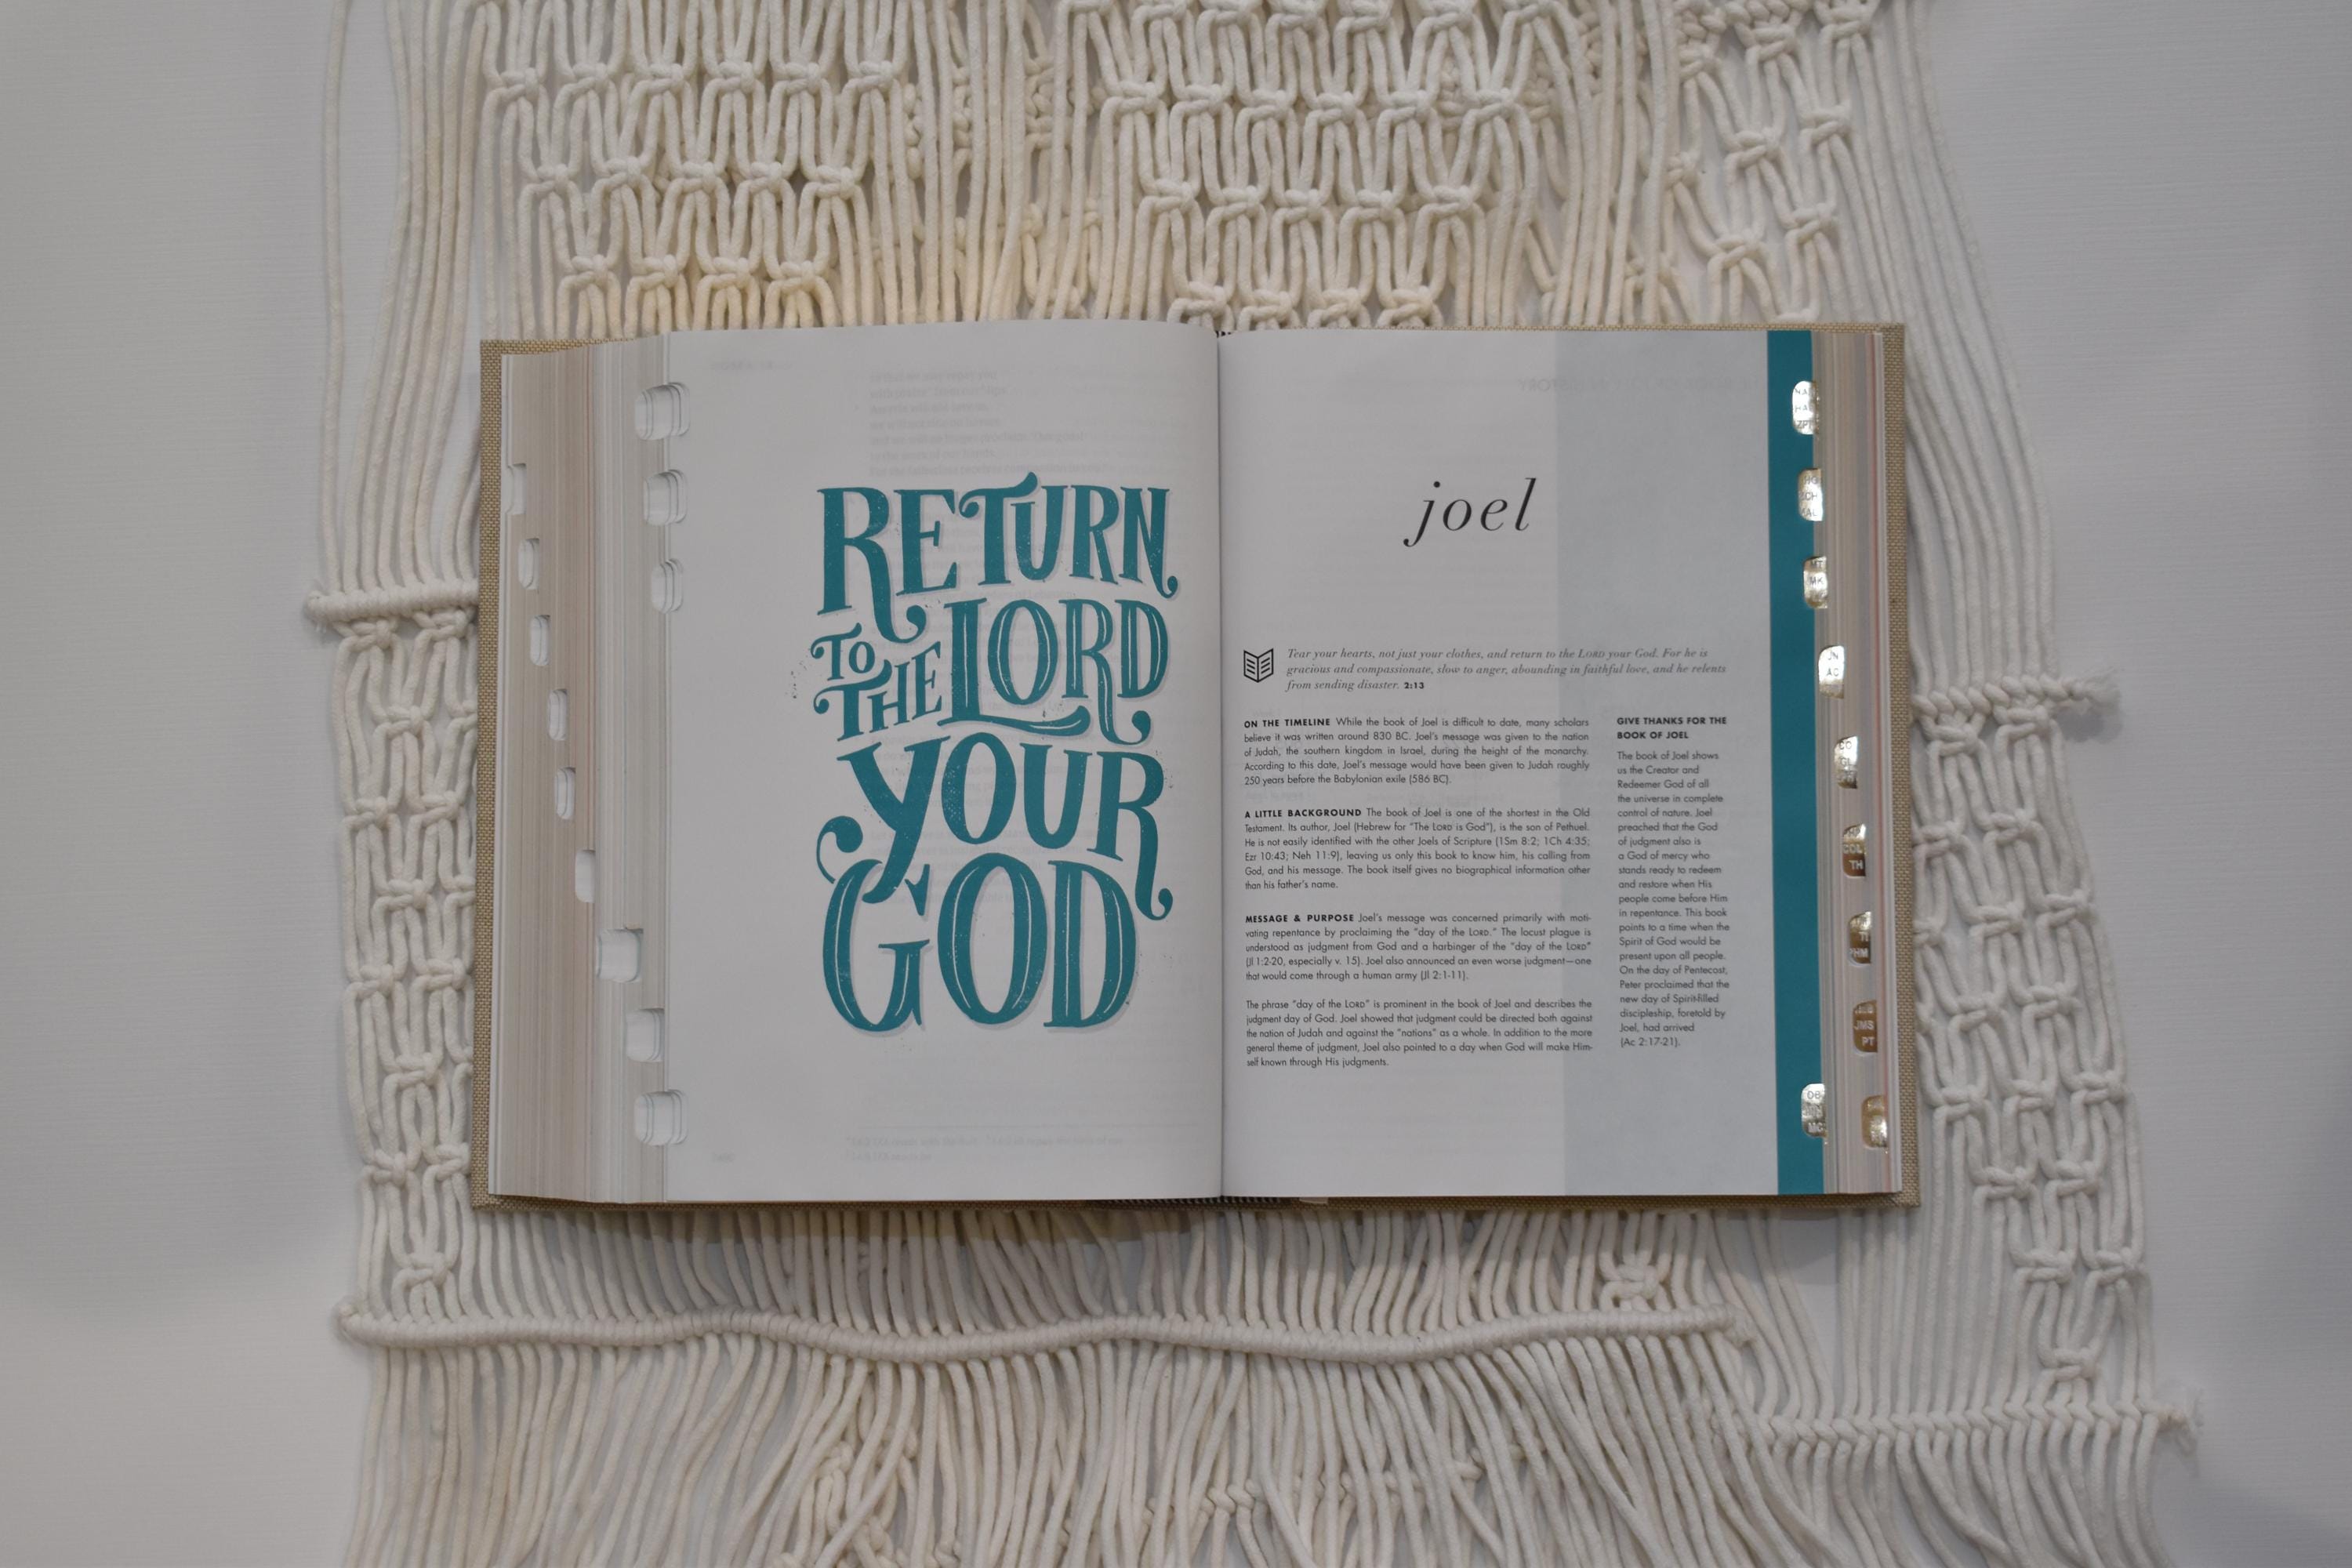 RETURN
TO THE LORD
YOUR
GOD
joel
Tear your hearts, not just your clothes, and return to the LORD your God. For he is
gracious and compassionate, slow to anger, abounding in faithful love, and he relents
from sending disaster. 2:13
ON THE TIMELINE While the book of Joel is difficult to date, many scholars
believe it was written around 830 BC. Joel's message was given to the nation
of Judah, the southern kingdom in Israel, during the height of the monarchy.
According to this date, Joel's message would have been given to Judah roughly
250 years before the Babylonian exile (586 BC).
A LITTLE BACKGROUND The book of Joel is one of the shortest in the Old
Testament. Its author, Joel (Hebrew for "The LORD is God"), is the son of Pethuel.
He is not easily identified with the other Joels of Scripture (1Sm 8:2; 1Ch 4:35;
Ezr 10:43; Neh 11:9), leaving us only this book to know him, his calling from
God, and his message. The book itself gives no biographical information other
than his father's name.
MESSAGE & PURPOSE Joel's message was concerned primarily with moti-
vating repentance by proclaiming the "day of the LORD." The locust plague is
understood as judgment from God and a harbinger of the "day of the LORD"
(Jl 1:2-20, especially v. 15). Joel also announced an even worse judgment—one
that would come through a human army (Jl 2:1-11).
The phrase "day of the LORD" is prominent in the book of Joel and describes the
judgment day of God. Joel showed that judgment could be directed both against
the nation of Judah and against the "nations" as a whole. In addition to the more
general theme of judgment, Joel also pointed to a day when God will make Him-
self known through His judgments.
GIVE THANKS FOR THE
BOOK OF JOEL
The book of Joel shows
us the Creator and
Redeemer God of all
the universe in complete
control of nature. Joel
preached that the God
of judgment also is
a God of mercy who
stands ready to redeem
and restore when His
people come before Him
in repentance. This book
points to a time when the
Spirit of God would be
present upon all people.
On the day of Pentecost,
Peter proclaimed that the
new day of Spirit-filled
discipleship, foretold by
Joel, had arrived
(Ac 2:17-21).
MT
MK
JN
AC
COL
TH
JMS
PT